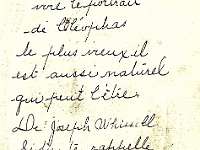 voir le portrait
de Cléophas
le plus vieux il
est aussi naturel
qui peut l'être.
De Joseph
rappelle